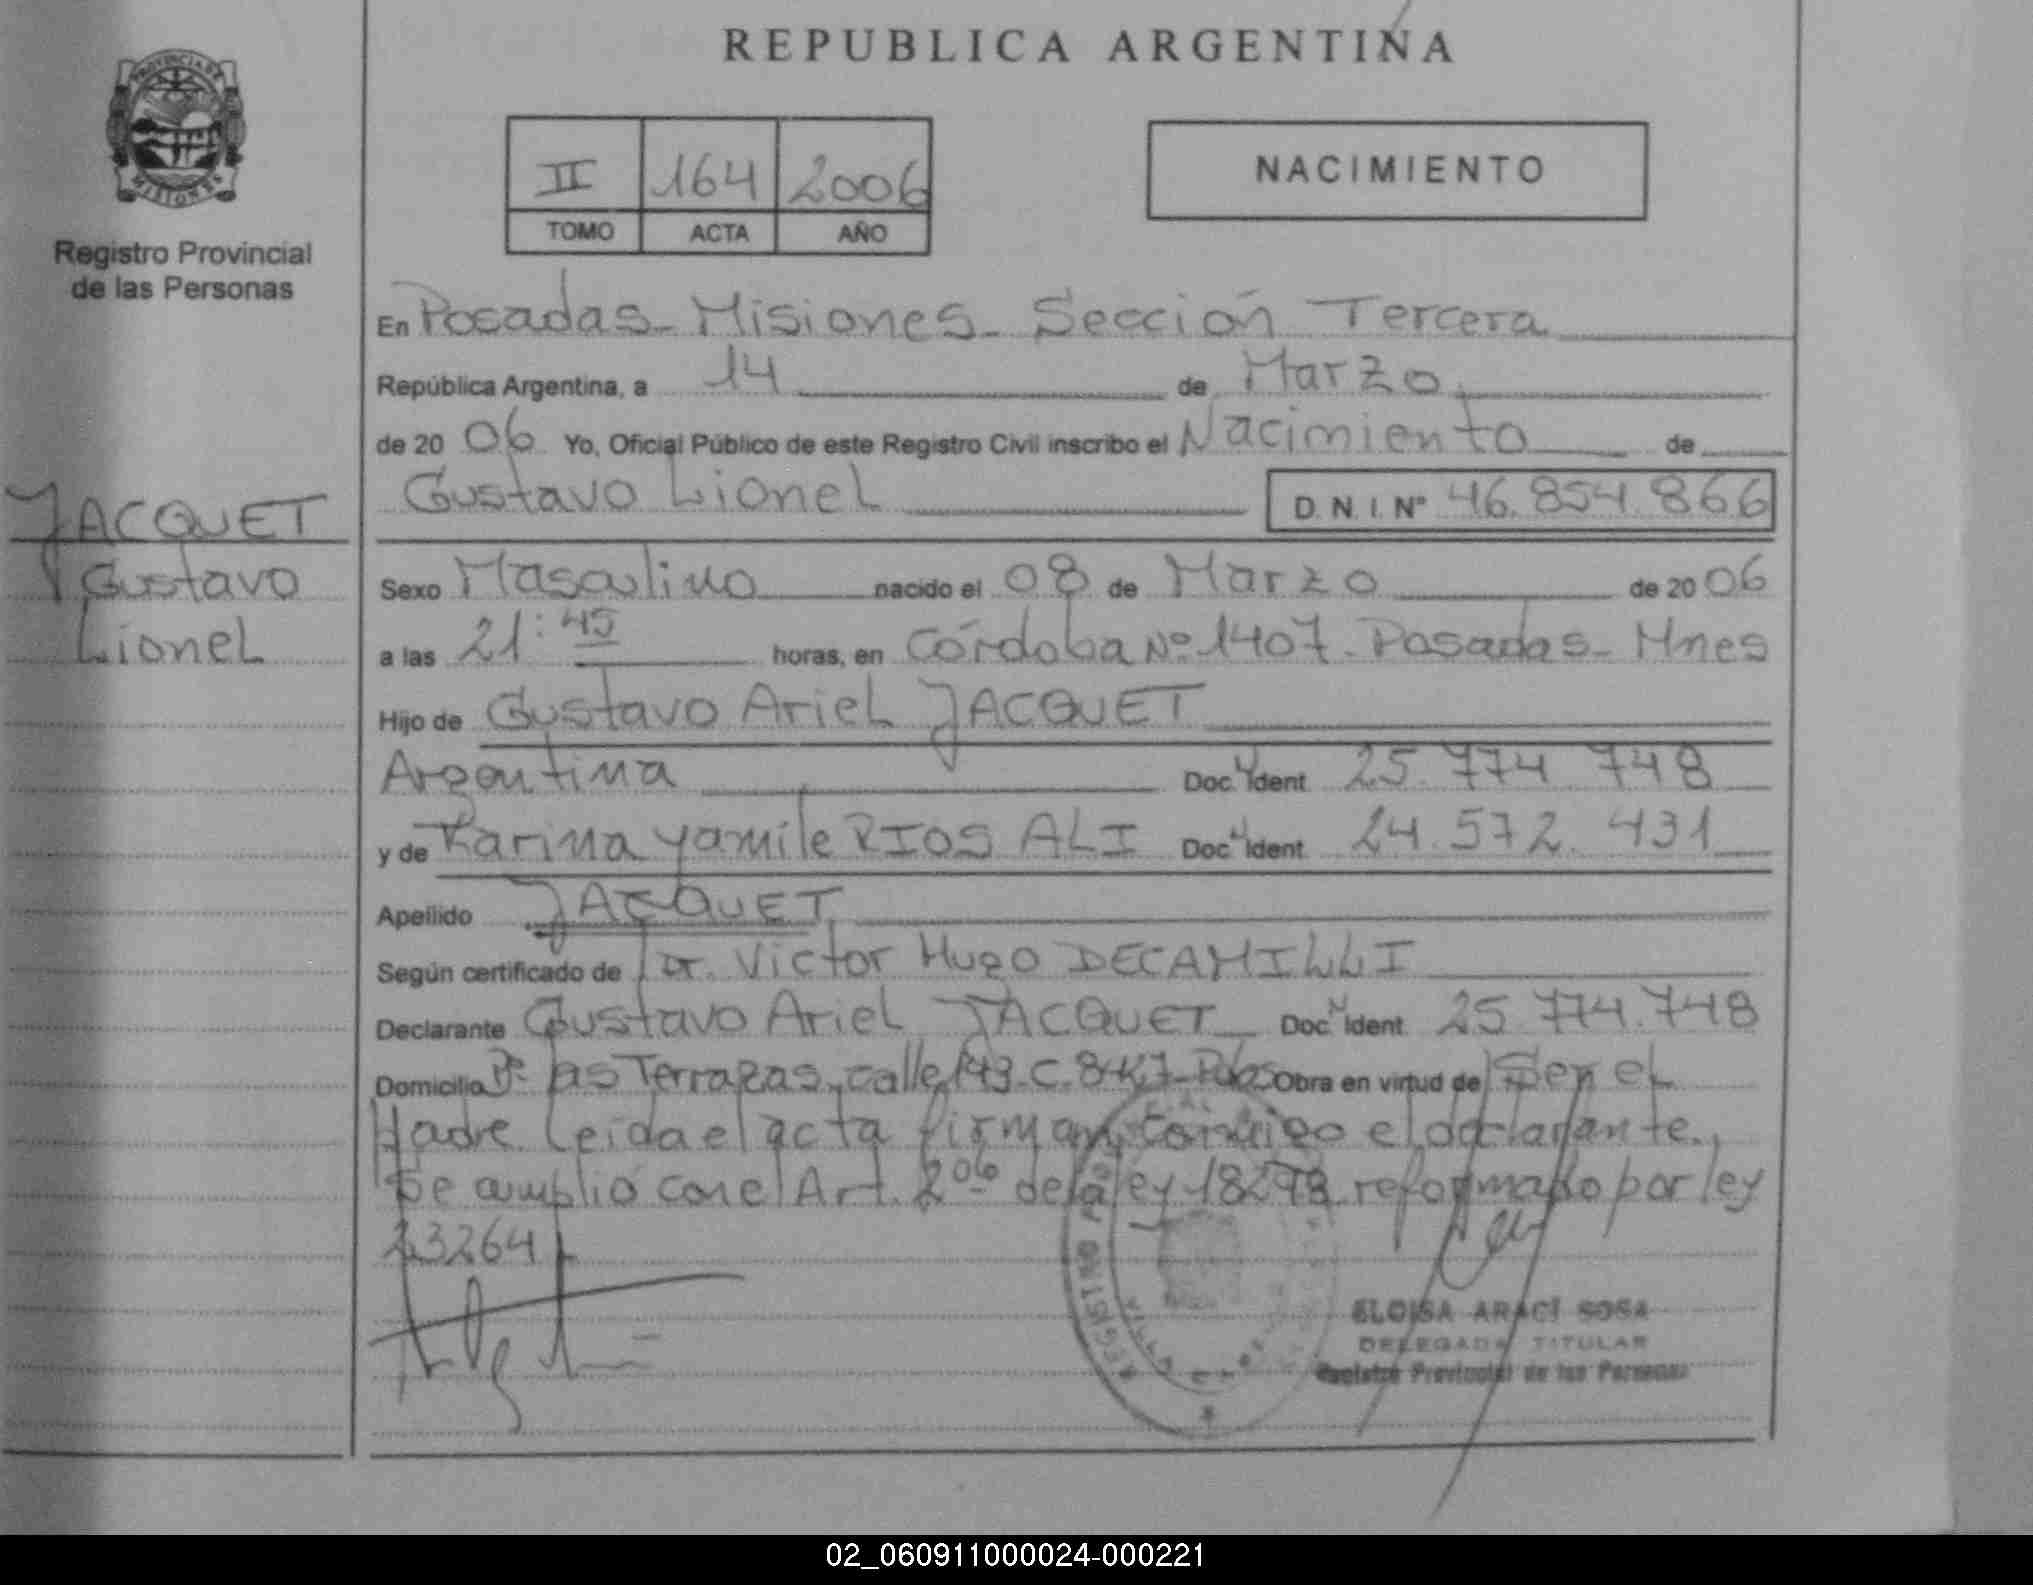 REPUBLICA ARGENTINA
PROVINCIA DE
MISIONES
Registro Provincial
de las Personas
II 164 2006
TOMO ACTA AÑO
NACIMIENTO
En Posadas - Misiones - Sección Tercera
República Argentina, a 14 de Marzo
de 20 06 Yo, Oficial Público de este Registro Civil inscribo el Nacimiento de
Gustavo Lionel D. N. I. Nº 46.854.866
JACQUET
Gustavo
Lionel
Sexo Masculino nacido el 08 de Marzo de 20 06
a las 21:45 horas, en Córdoba Nº 1407 - Posadas - Mnes
Hijo de Gustavo Ariel JACQUET
Argentina Doc. Ident. 25.774.748
y de Karina Yamile RIOS ALI Doc. Ident. 24.572.431
Apellido JACQUET
Según certificado de Dr. Victor Hugo DECAMILLI
Declarante Gustavo Ariel JACQUET Doc. Ident. 25.774.748
Domicilio Bº las Terrazas, calle 143 C. Obra en virtud de Ser el
Padre Leida el acta firman conmigo el declarante.
Se cumplió con el Art. 2º de la ley 18248 reformado por ley
23264
ELOISA ARACI SOSA
DELEGADA TITULAR
Registro Provincial de las Personas
REGISTRO
VILLA
02_060911000024-000221